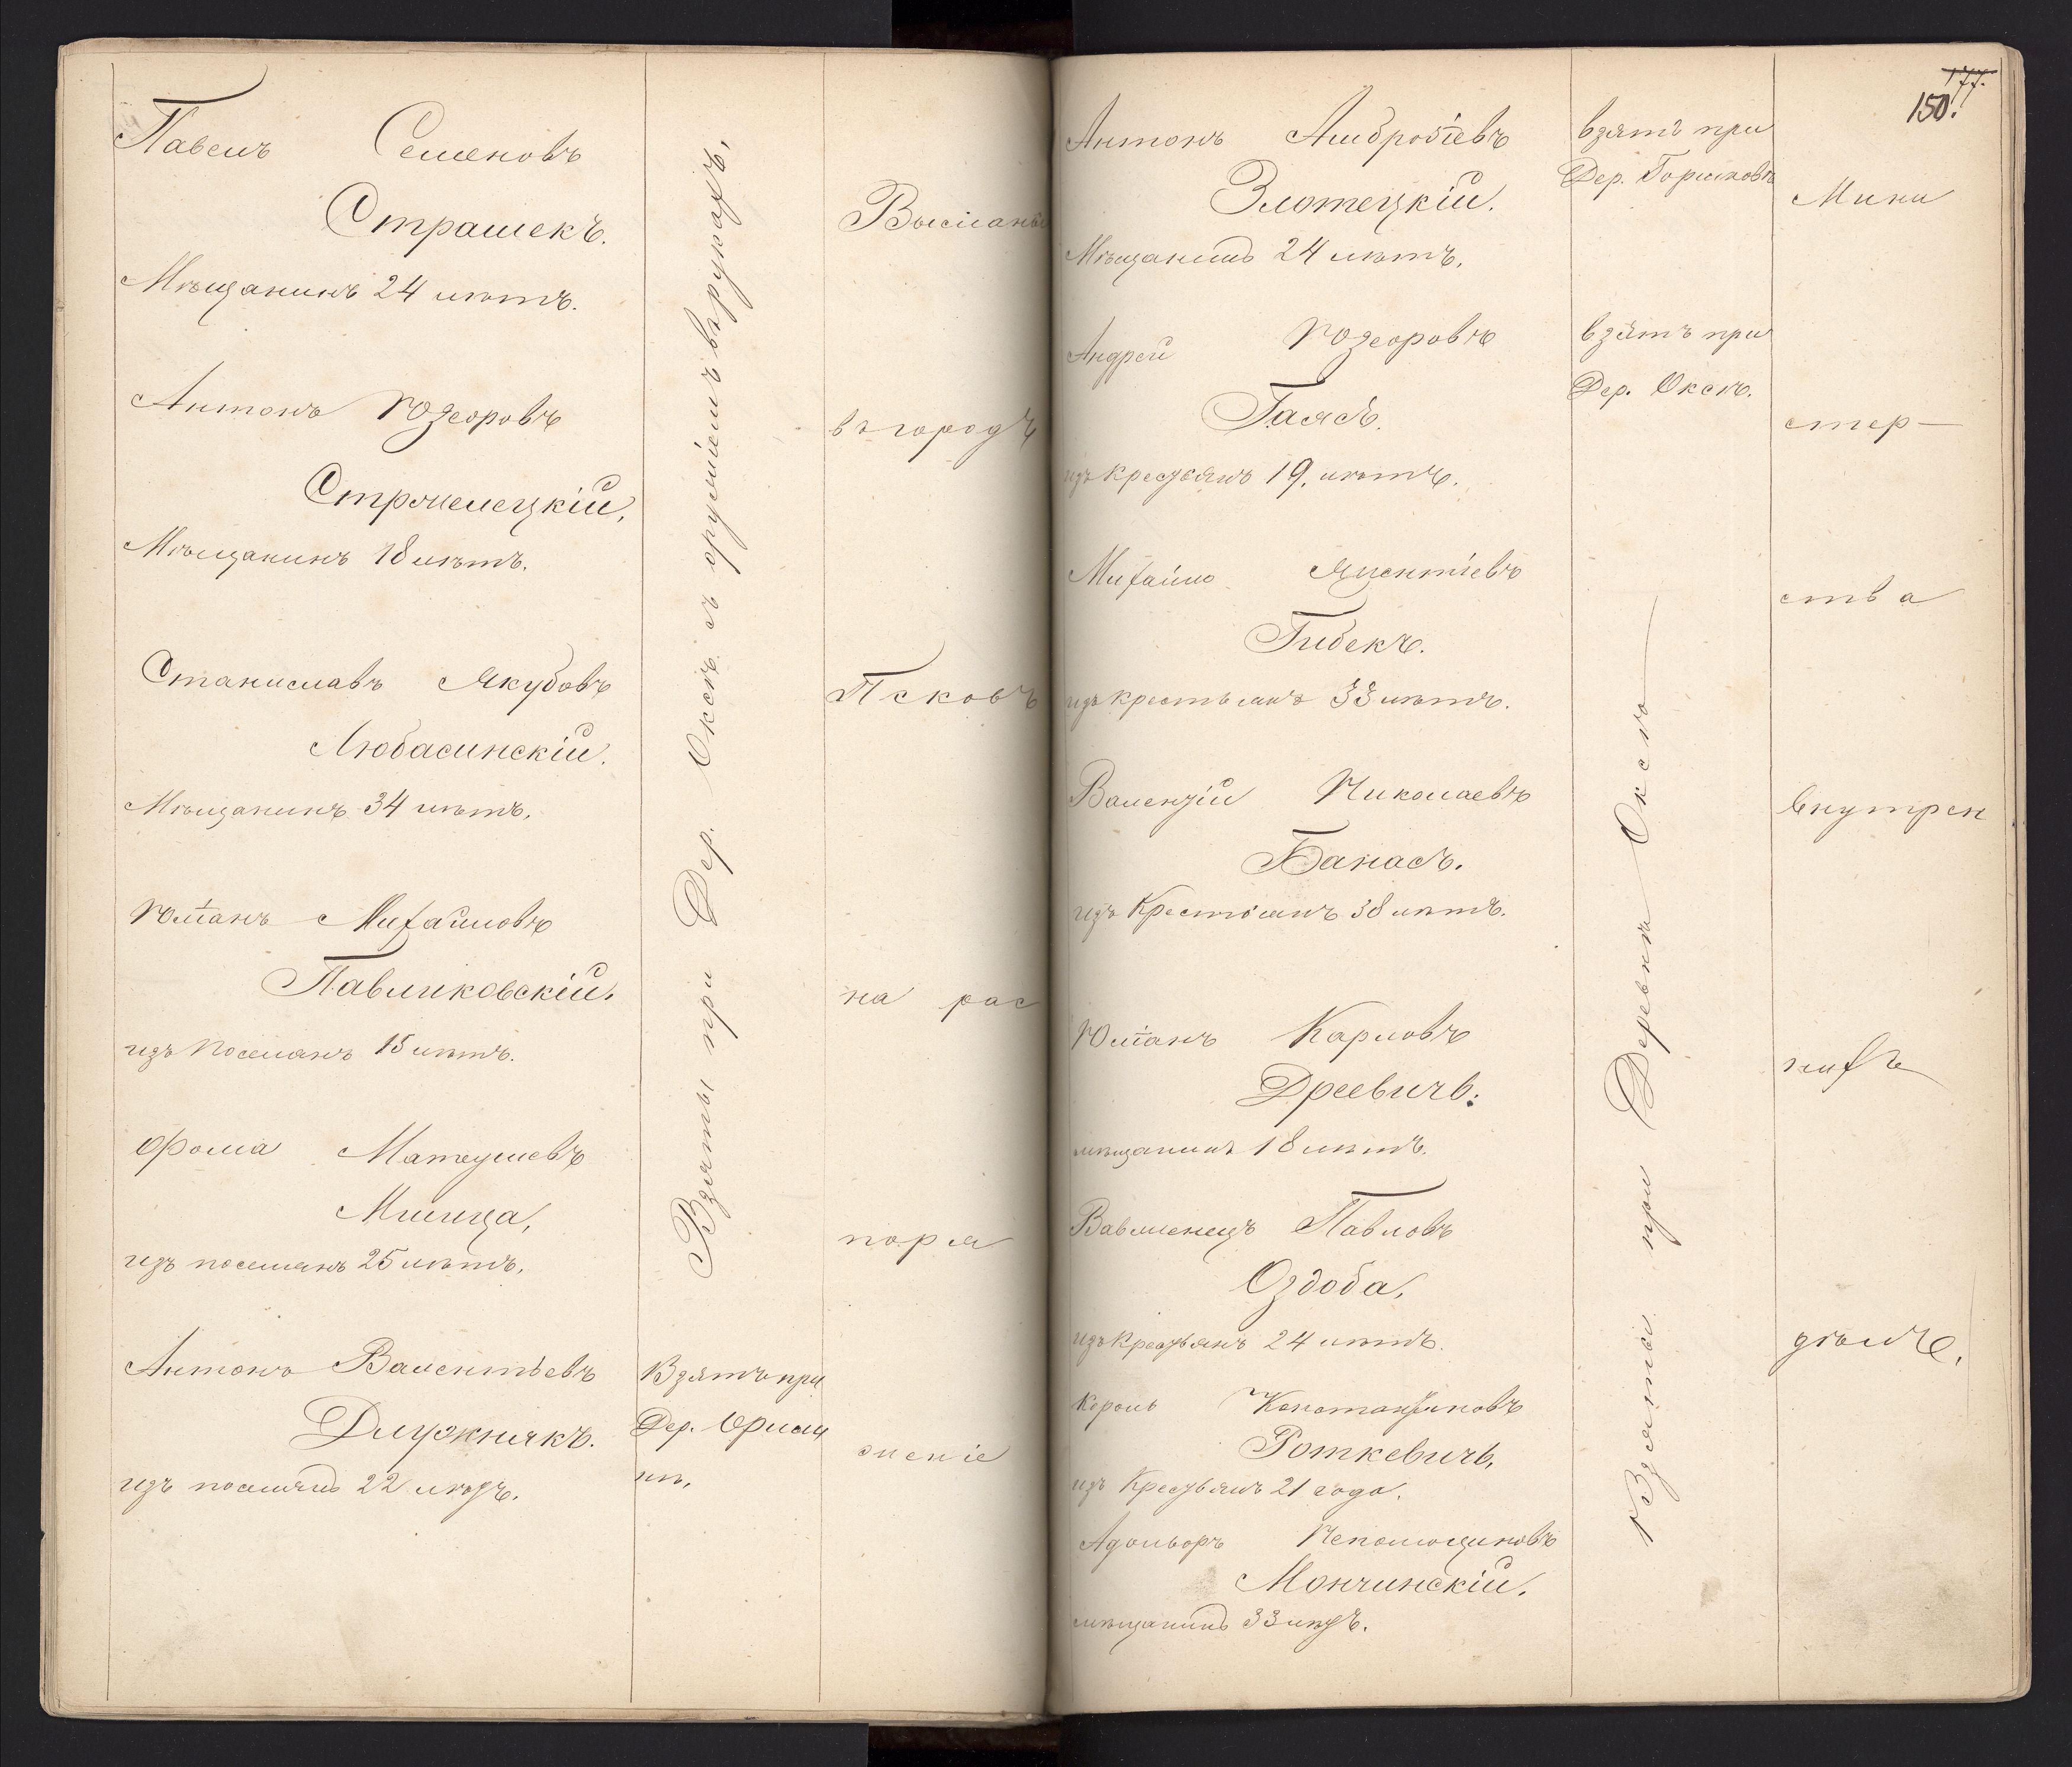 Павелъ Семеновъ
Страшекъ.
Мѣщанинъ 24 лѣтъ.
Антонъ Юзефовъ
Стржелецкій,
Мѣщанинъ 18 лѣтъ.
Станиславъ Якубовъ
Любасинскій.
Мѣщанинъ 34 лѣтъ.
Юліанъ Михайловъ
Павликовскій.
изъ поселянъ 15 лѣтъ.
Фома Матеушевъ
Милица,
изъ поселянъ 25 лѣтъ.
Антонъ Валентіевъ
Длужнякъ.
изъ поселянъ 22 лѣтъ.
Взяты при Дер. Оксѣ съ оружіемъ въ рукахъ,
Взятъ при
Дер.
Высланы
въ городъ
Псковъ
на рас
поря
женіе
177.
150.
Антонъ Амброзіевъ
Злотецкій.
Мѣщанинъ 24 лѣтъ.
взятъ при
Дер. Горшковъ
Андрей Юзефовъ
Гаясъ.
изъ крестьянъ 19. лѣтъ.
взятъ при
Дер. Оксѣ.
Михайло
Гибекъ.
изъ крестьянъ 33 лѣтъ.
Валенцій Николаевъ
Банасъ.
изъ Крестьянъ 38 лѣтъ.
Юліанъ Карловъ
Древичъ.
мѣщанинъ 18 лѣтъ.
Вавженецъ Павловъ
Оздоба,
изъ Крестьянъ 24 лѣтъ.
Кароль Константиновъ
Роткевичъ,
изъ Крестьянъ 21 года.
Адольфъ Непомоценовъ
Мончинскій.
мѣщанинъ 33 лѣтъ.
Взяты при Деревнѣ Оксѣ
Мини
стер-
ства
внутрен
нихъ
дѣлъ.